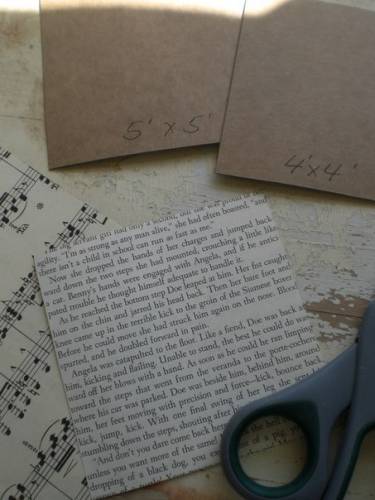 5' x 5'
4'x4'
girl had only a second, but she was proud of
agility. "I'm as strong as any man alive," she had often boasted, "and
there isn't a child in school can run as fast as me."
Now she dropped the hands of her charges and jumped back
and down the two steps she had mounted, crouching a little like
a cat. Benny's hands were engaged with Angela, and if the antics
trouble he thought himself adequate to handle it.
As he reached the bottom step Doe leaped at him. Her fist caught
him on the chin and jarred his head back. Then her bare foot and
knee came up in the terrible kick to the groin of the Siamese boxer.
Before he could move she had struck him again on the nose. Blood
spurted, and he doubled forward in pain.
Angela was catapulted to the floor. Like a fiend, Doe was back at
him, kicking and flailing. Unable to stand, the best he could do was
ward off her blows with a hand. As soon as he could he ran limping
toward the steps that went from the veranda to the
where his car was parked. Doe was beside him, behind him, around
him, her feet moving with precision and force—kick, bounce back,
kick, jump, kick. With one final swing of her leg she sent
tumbling down the steps, shouting after
"And don't you dare come back here
unless you want more of the same
dropping of a black dog, you